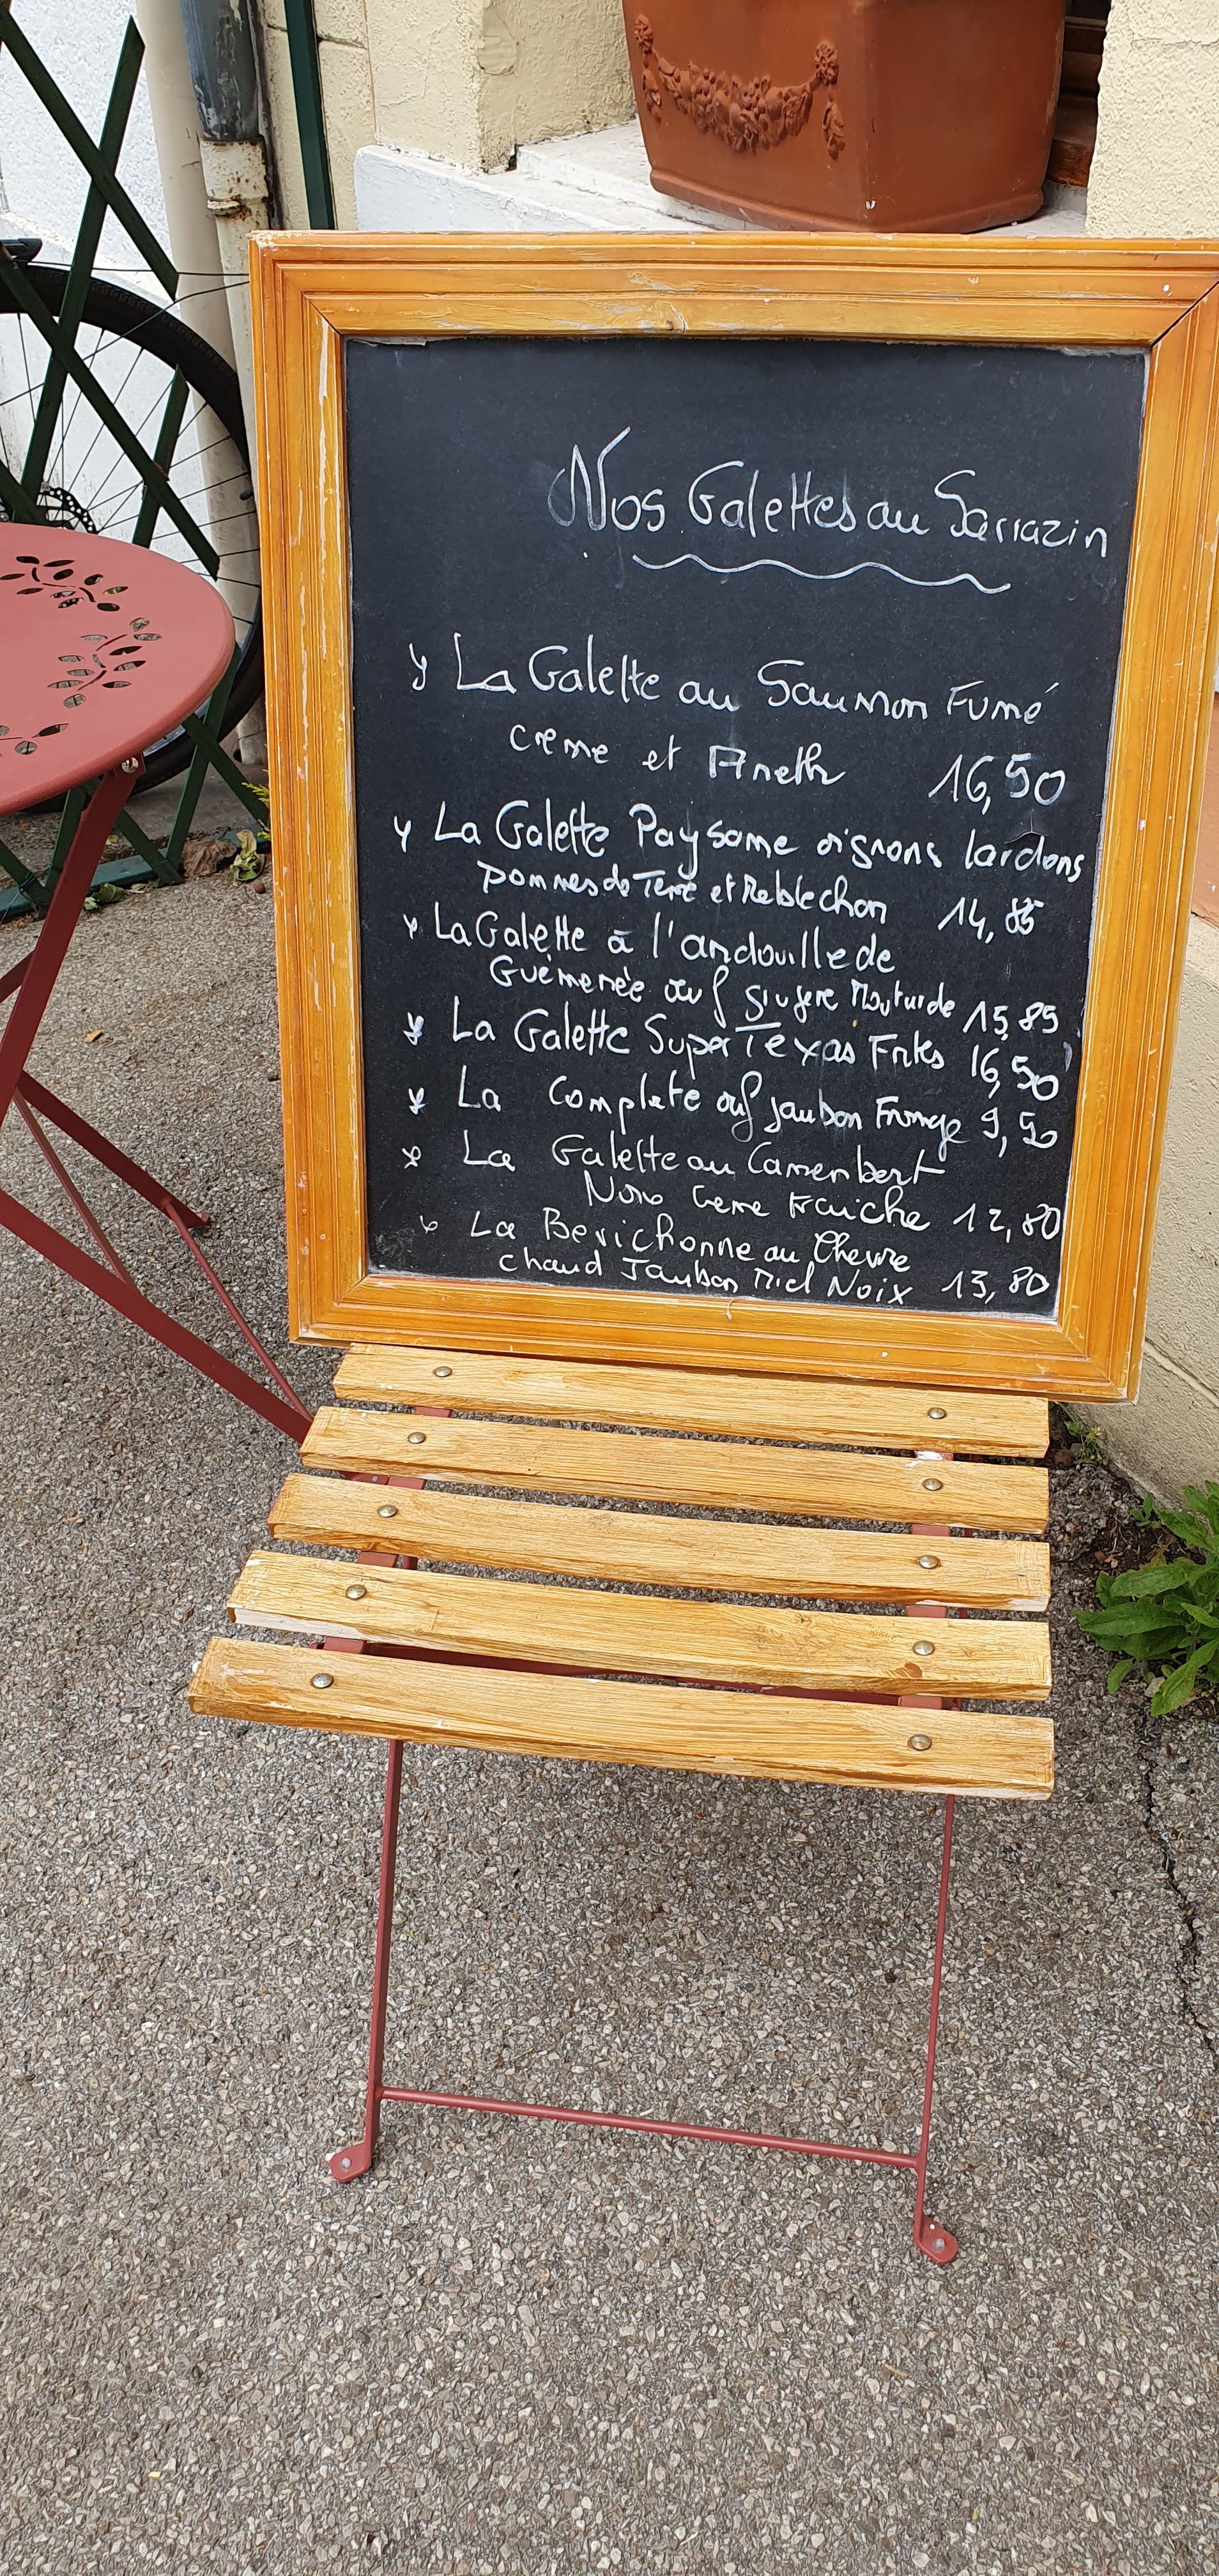 Nos Galettes au Sarrazin
La Galette au Saumon Fumé
creme et Aneth 16,50
La Galette Paysanne oignons lardons
pommes de Terre et Reblochon 14,85
La Galette à l'andouille de
Guémenée œuf gruyere Moutarde 15,85
La Galette Super Texas Frites 16,50
La Complete œuf jambon Fromage 9,50
La Galette au Camembert
Noix Creme Fraiche 12,80
La Berichonne au Chevre
chaud Jambon Miel Noix 13,80